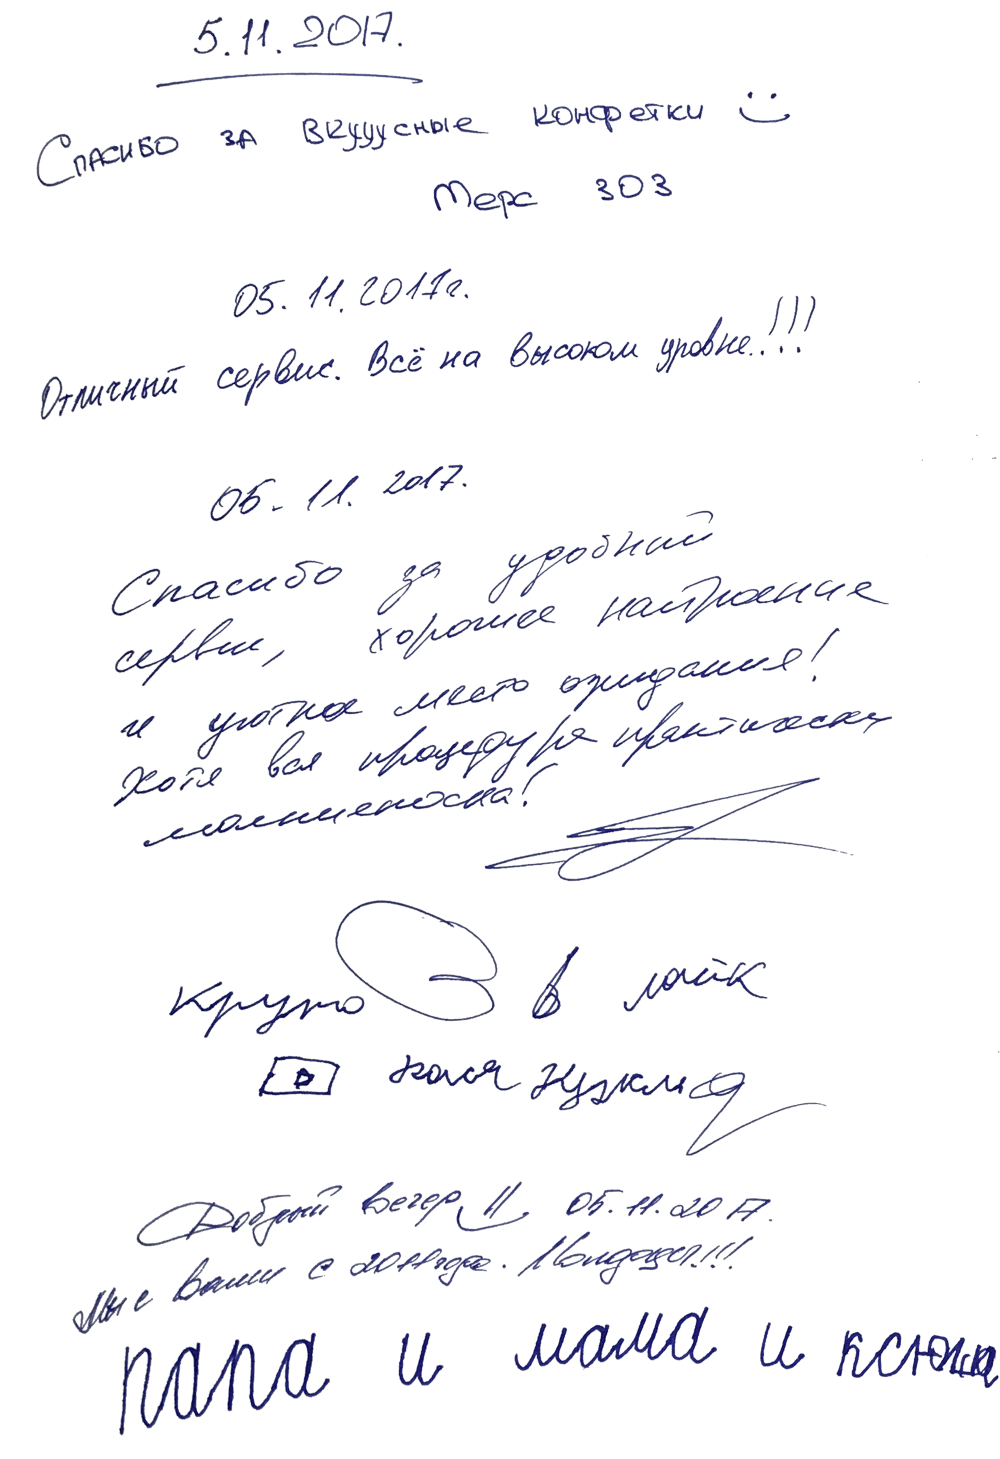 5.11.2017.
Спасибо за вкууусные конфетки :)
Мерс 303
05.11.2017г.
Отличный сервис. Всё на высоком уровне!!!
05.11.2017.
Спасибо за удобный
сервис, хорошее настроение
и уютное место ожидания!
Хотя вся процедура практически
молниеносна!
Круто в лайк
Коля
Добрый вечер 05.11.2017.
Мы с Вами с 2011 года. Молодцы!!!
папа и мама и ксюша